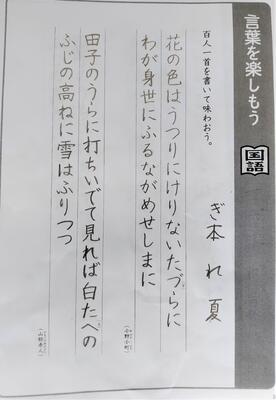 言葉を楽しもう
国語
百人一首を書いて味わおう。
ぎ本 れ 夏
花の色はうつりにけりないたづらに
わが身世にふるながめせしまに
(小野小町)
田子のうらに打ちいでて見れば白たへの
ふじの高ねに雪はふりつつ
(山部赤人)